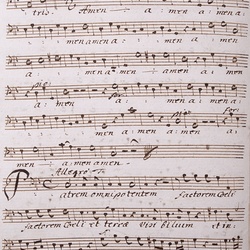 tris. Amen a men a men a
men a men a men a men a
a men a men a men a
a men a men a men
a men a men a men a
men a men a men.
Allegro
Patrem omnipotentem factorem Coeli
factorem Coeli et terrae visibilium et in